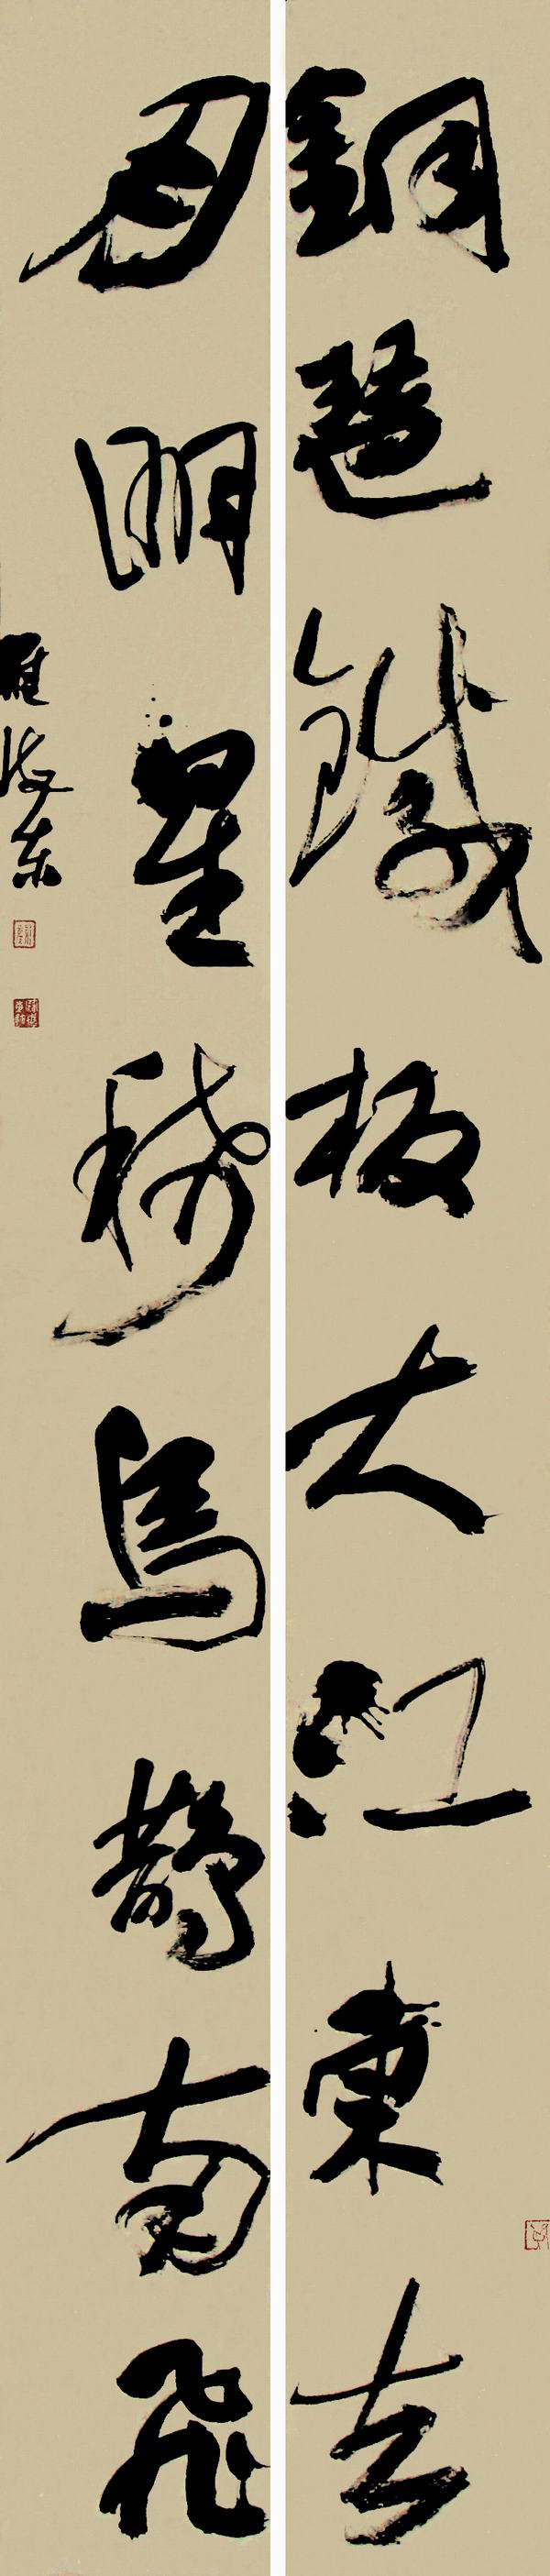 銅琶鐵板大江東去
月明星稀烏鵲南飛